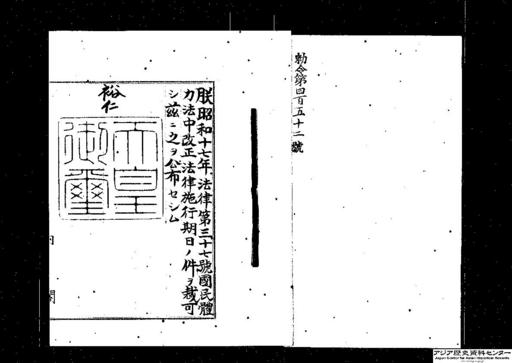 勅令第四百五十二號
朕昭和十七年法律第三十七號國民體
力法中改正法律施行期日ノ件ヲ裁可
シ茲ニ之ヲ公布セシム
裕仁
天皇
御璽
内
閣
アジア歴史資料センター
Japan Center for Asian Historical Records